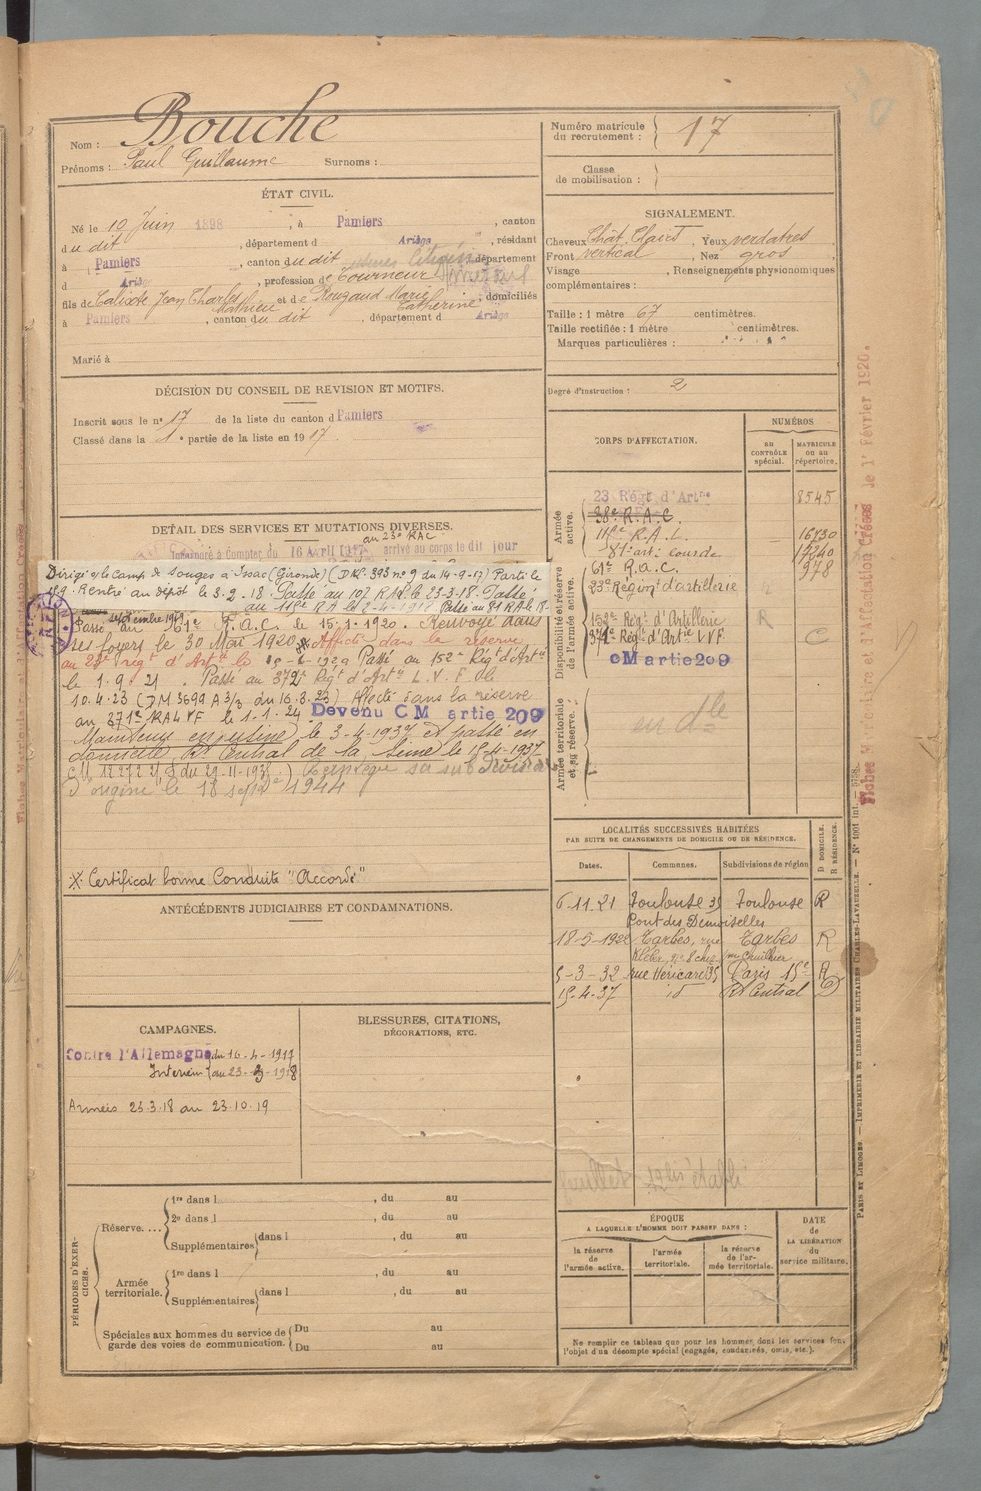 Nom : Bouche
Prénoms : Paul Guillaume Surnoms :
ÉTAT CIVIL.
Né le 10 Juin 1898, à Pamiers, canton
du dit, département d Ariège, résidant
à Pamiers, canton du dit département
d Ariège, profession de Tourneur
fils de Calixte Jean Charles Mathieu et de Rouzaud Marie Catherine, domiciliés
à Pamiers, canton du dit, département d Ariège
Marié à
DÉCISION DU CONSEIL DE REVISION ET MOTIFS.
Inscrit sous le n° 17 de la liste du canton d Pamiers
Classé dans la 1e partie de la liste en 1917.
DÉTAIL DES SERVICES ET MUTATIONS DIVERSES.
au 23e RAC
Incorporé à Compter du 16 Avril 1917 arrivé au corps le dit jour
Dirigé s/le camp de Souges à Issac (Gironde) (D.M. 393 n° 9 du 14-9-17) Parti le
Rentré au dépôt le 3-2-18. Passé au 107 RAL le 23-3-18. Passé
au 118e RA le 2-4-1918 Passé au 81 RA le 18-
septembre 1919
Passé au 61e R.A.C. le 15-1-1920. Renvoyé dans
ses foyers le 30 Mai 1920 ※ Affecté dans la réserve
au 23e régt d'Artie le Passé au 152e Régt d'Artie
le 1.9.21. Passé au 372e Régt d'Artie L.V.F. le
10.4.23 (DM 3699 A 3/3 du 16.3.23) Affecté dans la réserve
au 371e RALVF le 1.1.24 Devenu CM artie 209
Maintenu en usine le 3-4-1937 et passé en
domicile Rt Central de la Seine le 15-4-1937
du 29-11-193
d'origine le 18 septbre 1944
※ Certificat bonne Conduite "Accordé"
ANTÉCÉDENTS JUDICIAIRES ET CONDAMNATIONS.
CAMPAGNES.
Contre l'Allemagne du 16-4-1917
Intérieur au 23-3-1918
Armées 23.3.18 au 23.10.19
BLESSURES, CITATIONS,
DÉCORATIONS, ETC.
PÉRIODES D'EXERCICES.
Réserve....
1re dans l , du au
2e dans l , du au
Supplémentaires dans l , du au
Armée territoriale.
1re dans l , du au
Supplémentaires dans l , du au
Spéciales aux hommes du service de garde des voies de communication.
Du au
Du au
Numéro matricule du recrutement : 17
Classe de mobilisation :
SIGNALEMENT.
Cheveux Chât. Clairs, Yeux verdâtres
Front vertical, Nez gros
Visage , Renseignements physionomiques
complémentaires :
Taille : 1 mètre 67 centimètres.
Taille rectifiée : 1 mètre centimètres.
Marques particulières :
Degré d'instruction : 2
CORPS D'AFFECTATION.
NUMÉROS
AU CONTRÔLE spécial.
MATRICULE ou au répertoire.
Armée active.
23 Régt d'Artie 8545
38e R.A.C.
118e R.A.L. 16730
81e art: lourde 17240
61e R.A.C. 978
Disponibilité et réserve de l'armée active.
23e Régim' d'artillerie
152e Régt d'Artillerie R
371e Régt d'Artie L.V.F. C
CM artie 209
Armée territoriale et sa réserve.
LOCALITÉS SUCCESSIVES HABITÉES
PAR SUITE DE CHANGEMENTS DE DOMICILE OU DE RÉSIDENCE.
Dates. Communes. Subdivisions de région
D DOMICILE.
R RÉSIDENCE.
6.11.21 Toulouse 35 Toulouse R
Pont des Demoiselles
18-5-192 Tarbes, rue Tarbes R
Kléber, n° 8 chez
5-3-32 rue Héricart 35 Paris 15e R
15.4.37 id Rt Central D
feuillet établi
ÉPOQUE
A LAQUELLE L'HOMME DOIT PASSER DANS :
la réserve de l'armée active.
l'armée territoriale.
la réserve de l'armée territoriale.
DATE de LA LIBÉRATION du service militaire.
Ne remplir ce tableau que pour les hommes dont les services font
l'objet d'un décompte spécial (engagés, condamnés, omis, etc.).
Fiches Matriculaire et d'Affectation Créées le 1er février 1920.
PARIS ET LIMOGES. — IMPRIMERIE ET LIBRAIRIE MILITAIRES CHARLES-LAVAUZELLE. — N° 1001 int. —